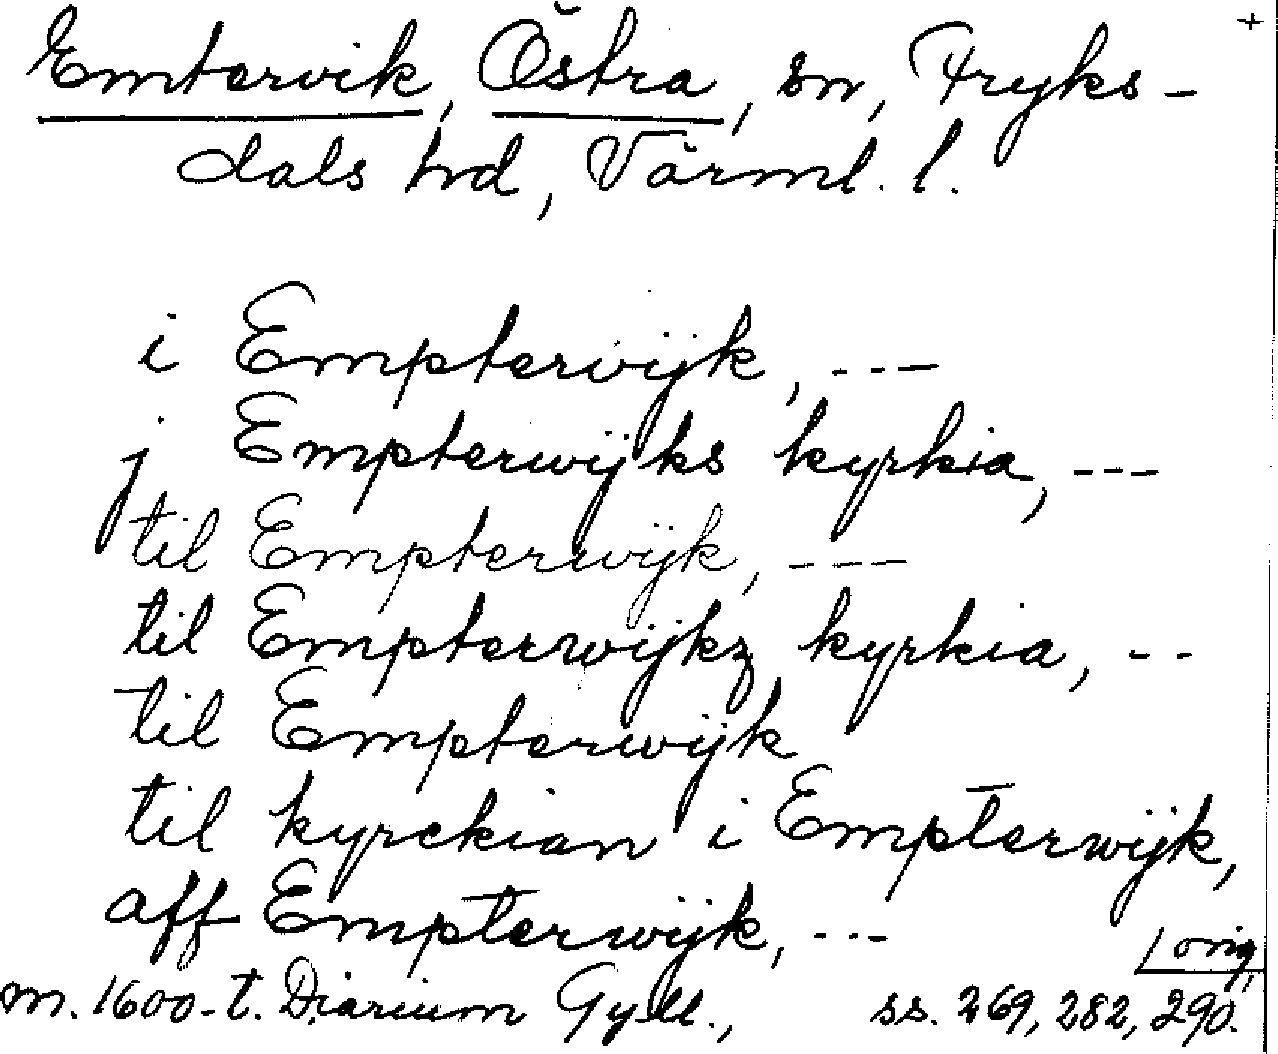 +
Emtervik, Östra, sn, Fryks-
dals hd, Värml. l.
i Empterwijk, ---
j Empterwijks kyrkia, ---
til Empterwijk, ---
til Empterwijkz kyrkia, --
til Empterwijk
til kyrckian i Empterwijk,
aff Empterwijk, ---
/ orig,
m. 1600-t. Diarium Gyll., ss. 269, 282, 290.